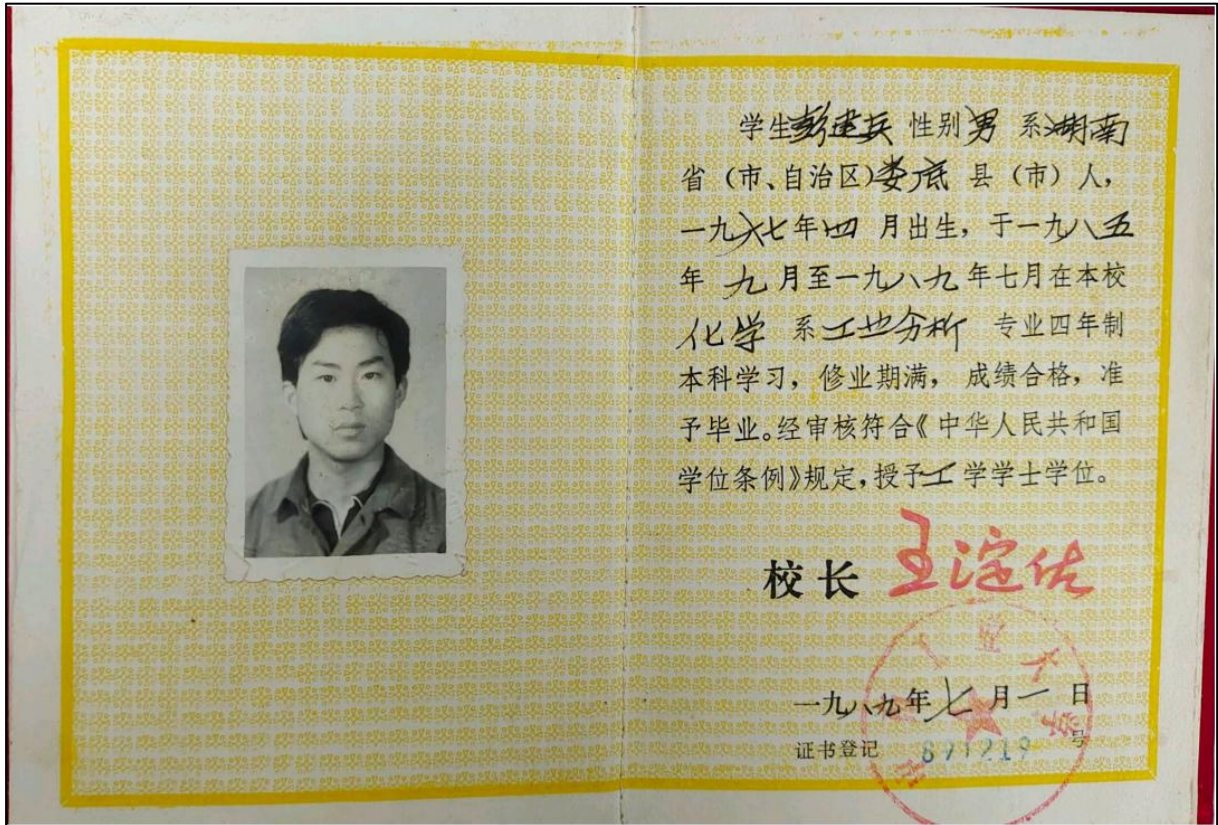 学生彭建兵 性别男 系湖南
省（市、自治区）娄底 县（市）人，
一九六七年四 月出生，于一九八五
年 九月至一九八九年七月在本校
化学 系工业分析 专业四年制
本科学习，修业期满，成绩合格，准
予毕业。经审核符合《中华人民共和国
学位条例》规定，授予工 学学士学位。
校长 王淀佐
一九八九年七月一日
证书登记 891219 号
工业大学